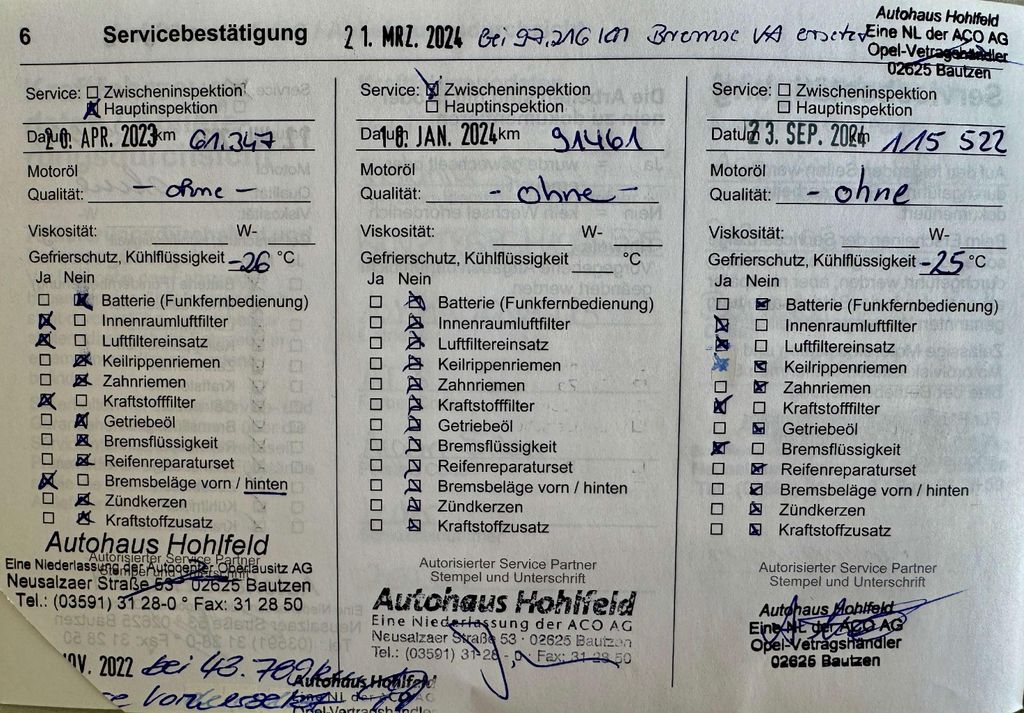 6 Servicebestätigung 21. MRZ. 2024 Bei 97.216 km Bremse VA ersetzt
Autohaus Hohlfeld
Eine NL der ACO AG
Opel-Vetragshändler
02625 Bautzen
Service: Zwischeninspektion
Hauptinspektion
Datum 20. APR. 2023 km 61.347
Motoröl
Qualität: - ohne -
Viskosität: W-
Gefrierschutz, Kühlflüssigkeit -26 °C
Ja Nein
Batterie (Funkfernbedienung)
Innenraumluftfilter
Luftfiltereinsatz
Keilrippenriemen
Zahnriemen
Kraftstofffilter
Getriebeöl
Bremsflüssigkeit
Reifenreparaturset
Bremsbeläge vorn / hinten
Zündkerzen
Kraftstoffzusatz
Autohaus Hohlfeld
Autorisierter Service Partner
Eine Niederlassung der Autocenter Oberlausitz AG
Stempel und Unterschrift
Neusalzaer Straße 53 · 02625 Bautzen
Tel.: (03591) 31 28-0 ° Fax: 31 28 50
NOV. 2022 bei 43.700
Autohaus Hohlfeld
Eine NL der ACO AG
Opel-Vertragshändler
Service: Zwischeninspektion
Hauptinspektion
Datum 18. JAN. 2024 km 91461
Motoröl
Qualität: - ohne -
Viskosität: W-
Gefrierschutz, Kühlflüssigkeit °C
Ja Nein
Batterie (Funkfernbedienung)
Innenraumluftfilter
Luftfiltereinsatz
Keilrippenriemen
Zahnriemen
Kraftstofffilter
Getriebeöl
Bremsflüssigkeit
Reifenreparaturset
Bremsbeläge vorn / hinten
Zündkerzen
Kraftstoffzusatz
Autorisierter Service Partner
Stempel und Unterschrift
Autohaus Hohlfeld
Eine Niederlassung der ACO AG
Neusalzaer Straße 53 · 02625 Bautzen
Tel.: (03591) 31 28 - 0, Fax: 31 28 50
Service: Zwischeninspektion
Hauptinspektion
Datum 23. SEP. 2024 115 522
Motoröl
Qualität: - ohne -
Viskosität: W-
Gefrierschutz, Kühlflüssigkeit -25 °C
Ja Nein
Batterie (Funkfernbedienung)
Innenraumluftfilter
Luftfiltereinsatz
Keilrippenriemen
Zahnriemen
Kraftstofffilter
Getriebeöl
Bremsflüssigkeit
Reifenreparaturset
Bremsbeläge vorn / hinten
Zündkerzen
Kraftstoffzusatz
Autorisierter Service Partner
Stempel und Unterschrift
Autohaus Hohlfeld
Eine NL der ACO AG
Opel-Vetragshändler
02625 Bautzen